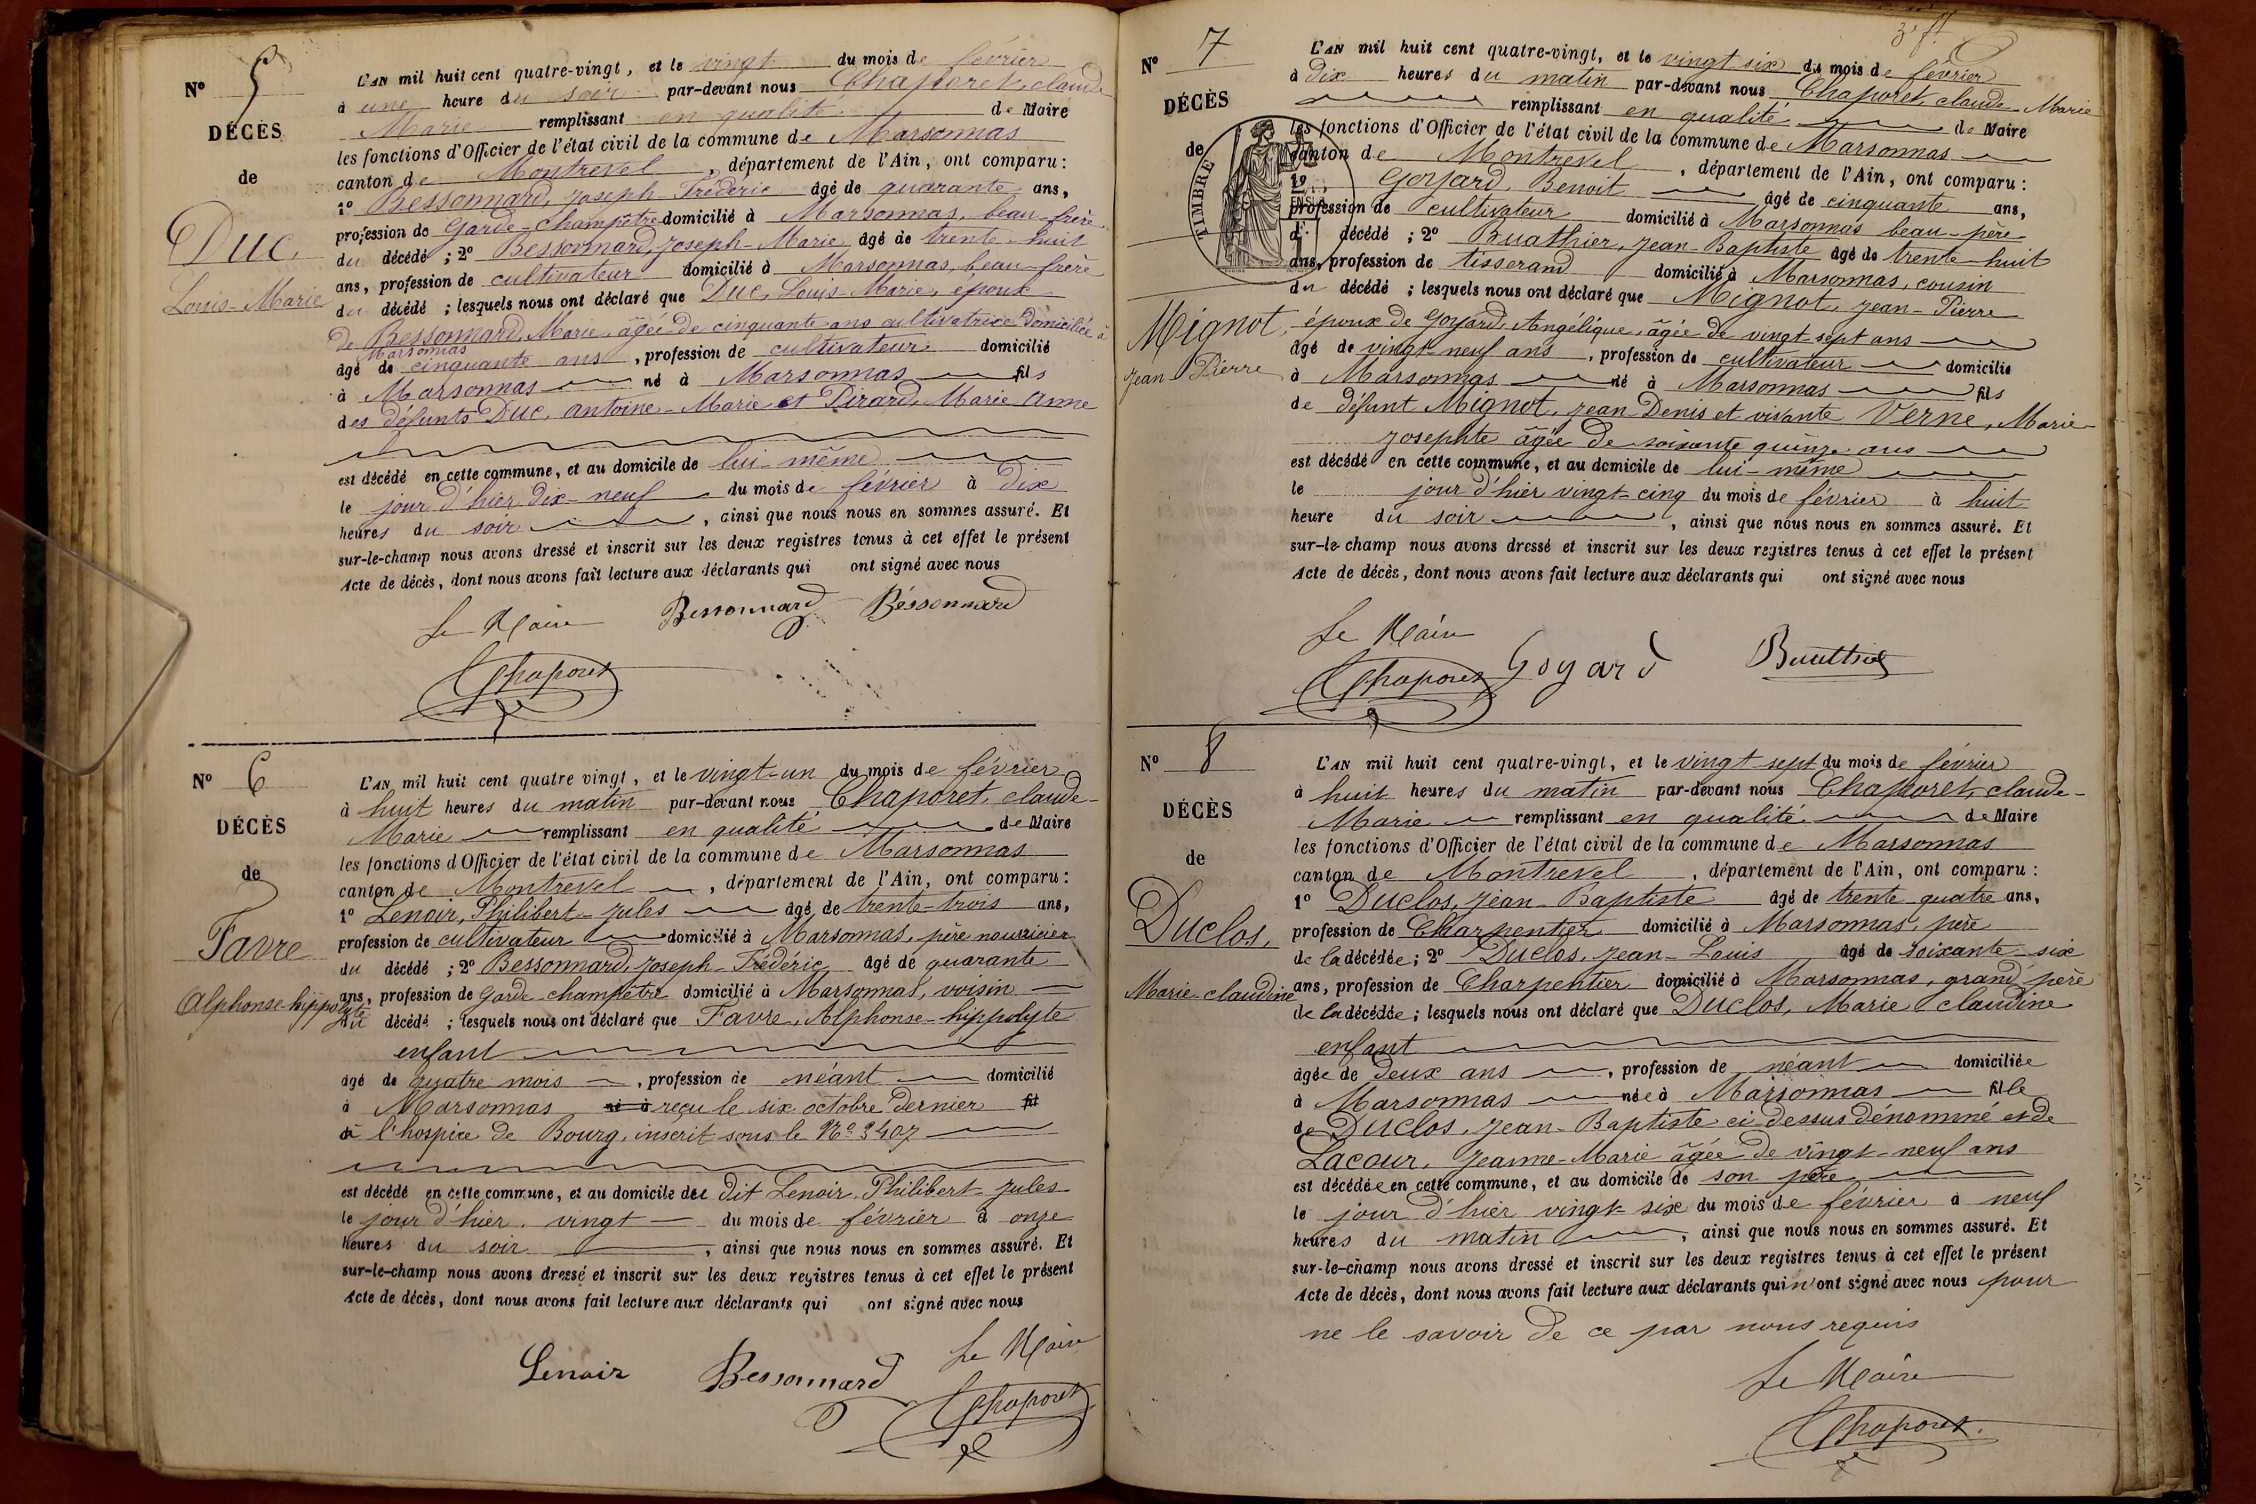 Nº 5
DÉCÈS
de
Duc,
Louis-Marie
L'AN mil huit cent quatre-vingt, et le vingt du mois de février
à une heure du soir par-devant nous Chaporet, claude
Marie remplissant en qualité de Maire
les fonctions d'Officier de l'état civil de la commune de Marsonnas
canton de Montrevel, département de l'Ain, ont comparu :
1º Bessonnard, Joseph-Frédéric âgé de quarante ans,
profession de Garde-champêtre domicilié à Marsonnas, beau-frère
du décédé ; 2º Bessonnard, Joseph-Marie âgé de trente-huit
ans, profession de cultivateur domicilié à Marsonnas, beau-frère
du décédé ; lesquels nous ont déclaré que Duc, Louis-Marie, époux
de Bessonnard, Marie, âgée de cinquante ans cultivatrice domiciliée à
Marsonnas
âgé de cinquante ans, profession de cultivateur domicilié
à Marsonnas né à Marsonnas fils
des défunts Duc, antoine-Marie et Pirard, Marie anne
est décédé en cette commune, et au domicile de lui-même
le jour d'hier dix-neuf du mois de février à dix
heures du soir, ainsi que nous nous en sommes assuré. Et
sur-le-champ nous avons dressé et inscrit sur les deux registres tenus à cet effet le présent
Acte de décès, dont nous avons fait lecture aux déclarants qui ont signé avec nous
Le Maire Bessonnard Bessonnard
Chaporet
Nº 6
DÉCÈS
de
Favre
Alphonse-hippolyte
L'AN mil huit cent quatre vingt, et le vingt-un du mois de février
à huit heures du matin par-devant nous Chaporet, claude-
Marie remplissant en qualité de Maire
les fonctions d'Officier de l'état civil de la commune de Marsonnas
canton de Montrevel, département de l'Ain, ont comparu :
1º Lenoir, Philibert-Jules âgé de trente-trois ans,
profession de cultivateur domicilié à Marsonnas, père nourricier
du décédé ; 2º Bessonnard, Joseph-Frédéric âgé de quarante
ans, profession de Garde champêtre domicilié à Marsonnas, voisin
du décédé ; lesquels nous ont déclaré que Favre, Alphonse-hippolyte
enfant
âgé de quatre mois, profession de néant domicilié
à Marsonnas né à reçu le six octobre dernier fil
à l'hospice de Bourg, inscrit sous le Nº 3407
est décédé en cette commune, et au domicile du dit Lenoir, Philibert-Jules
le jour d'hier vingt du mois de février à onze
heures du soir, ainsi que nous nous en sommes assuré. Et
sur-le-champ nous avons dressé et inscrit sur les deux registres tenus à cet effet le présent
Acte de décès, dont nous avons fait lecture aux déclarants qui ont signé avec nous
Lenoir Bessonnard Le Maire
Chaporet
Nº 7
DÉCÈS
de
TIMBRE
Mignot,
Jean-Pierre
L'AN mil huit cent quatre-vingt, et le vingt six du mois de février
à dix heures du matin par-devant nous Chaporet, claude-Marie
remplissant en qualité de Maire
les fonctions d'Officier de l'état civil de la commune de Marsonnas
canton de Montrevel, département de l'Ain, ont comparu :
1º Goyard, Benoit âgé de cinquante ans,
profession de cultivateur domicilié à Marsonnas beau-père
du décédé ; 2º Buathier, Jean-Baptiste âgé de trente-huit
ans, profession de tisserand domicilié à Marsonnas, cousin
du décédé ; lesquels nous ont déclaré que Mignot, Jean-Pierre
époux de Goyard, Angélique, âgée de vingt sept ans
âgé de vingt neuf ans, profession de cultivateur domicilié
à Marsonnas né à Marsonnas fils
de défunt Mignot, Jean Denis et vivante Verne, Marie-
Josephte âgée de soixante quinze ans
est décédé en cette commune, et au domicile de lui-même
le jour d'hier vingt-cinq du mois de février à huit
heure du soir, ainsi que nous nous en sommes assuré. Et
sur-le-champ nous avons dressé et inscrit sur les deux registres tenus à cet effet le présent
Acte de décès, dont nous avons fait lecture aux déclarants qui ont signé avec nous
Le Maire
Chaporet Goyard Buathier
Nº 8
DÉCÈS
de
Duclos,
Marie-claudine
L'AN mil huit cent quatre-vingt, et le vingt sept du mois de février
à huit heures du matin par-devant nous Chaporet, claude-
Marie remplissant en qualité de Maire
les fonctions d'Officier de l'état civil de la commune de Marsonnas
canton de Montrevel, département de l'Ain, ont comparu :
1º Duclos, Jean-Baptiste âgé de trente quatre ans,
profession de Charpentier domicilié à Marsonnas, père
de la décédée ; 2º Duclos, Jean-Louis âgé de soixante-six
ans, profession de Charpentier domicilié à Marsonnas, grand père
de la décédée ; lesquels nous ont déclaré que Duclos, Marie claudine
enfant
âgée de deux ans, profession de néant domiciliée
à Marsonnas née à Marsonnas fille
de Duclos, Jean-Baptiste ci-dessus dénommé et de
Lacour, Jeanne-Marie âgée de vingt-neuf ans
est décédée en cette commune, et au domicile de son père
le jour d'hier vingt-six du mois de février à neuf
heures du matin, ainsi que nous nous en sommes assuré. Et
sur-le-champ nous avons dressé et inscrit sur les deux registres tenus à cet effet le présent
Acte de décès, dont nous avons fait lecture aux déclarants qui n'ont signé avec nous pour
ne le savoir de ce par nous requis
Le Maire
Chaporet